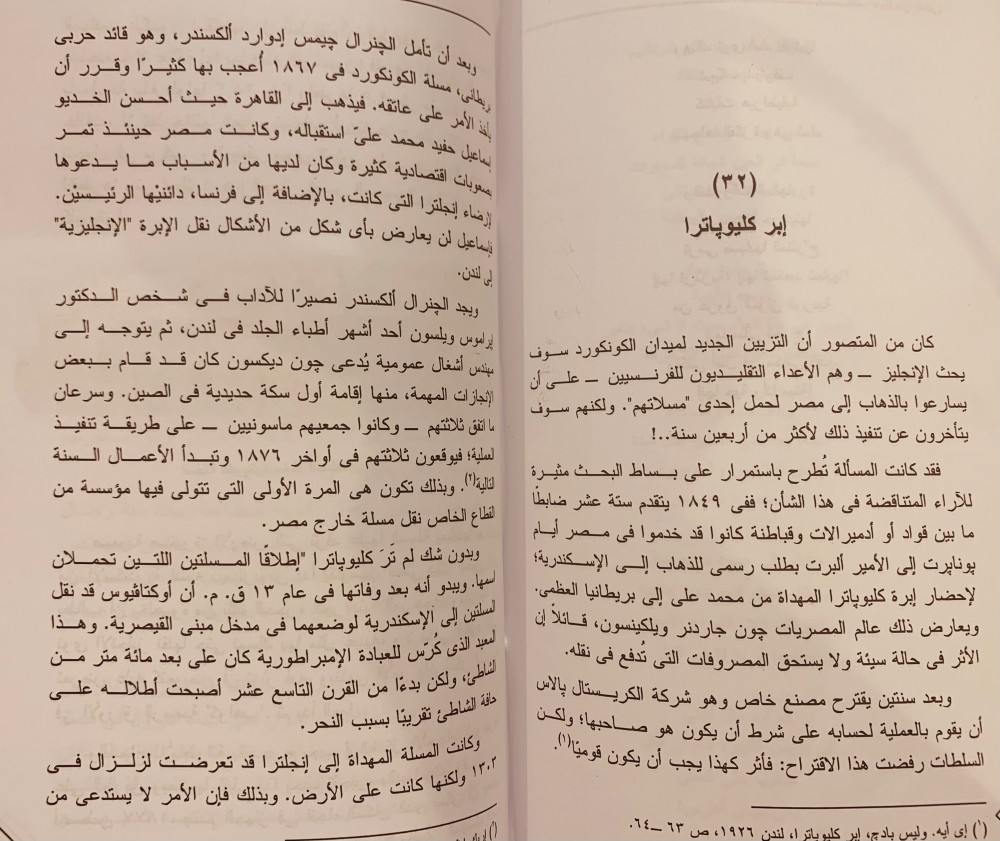 (٣٢)
إبر كليوپاترا
كان من المتصور أن التزيين الجديد لميدان الكونكورد سوف
يحث الإنجليز ــ وهم الأعداء التقليديون للفرنسيين ــ على أن
يسارعوا بالذهاب إلى مصر لحمل إحدى "مسلاتهم". ولكنهم سوف
يتأخرون عن تنفيذ ذلك لأكثر من أربعين سنة..!
فقد كانت المسألة تُطرح باستمرار على بساط البحث مثيرة
للآراء المتناقضة فى هذا الشأن؛ ففى ١٨٤٩ يتقدم ستة عشر ضابطًا
ما بين قواد أو أدميرالات وقباطنة كانوا قد خدموا فى مصر أيام
پوناپرت إلى الأمير ألبرت بطلب رسمى للذهاب إلى الإسكندرية؛
لإحضار إبرة كليوپاترا المهداة من محمد على إلى بريطانيا العظمى.
ويعارض ذلك عالم المصريات چون جاردنر ويلكينسون، قائلاً إن
الأثر فى حالة سيئة ولا يستحق المصروفات التى تُدفع فى نقله.
وبعد سنتين يقترح مصنع خاص وهو شركة الكريستال پالاس
أن يقوم بالعملية لحسابه على شرط أن يكون هو صاحبها؛ ولكن
السلطات رفضت هذا الاقتراح: فأثر كهذا يجب أن يكون قوميًا(١).
(١) إى أيه. وليس بادچ، إبر كليوپاترا، لندن ١٩٢٦، ص ٦٣ ــ٦٤.
وبعد أن تأمل الچنرال چيمس إدوارد ألكسندر، وهو قائد حربى
بريطانى، مسلة الكونكورد فى ١٨٦٧ أُعجب بها كثيرًا وقرر أن
يأخذ الأمر على عاتقه. فيذهب إلى القاهرة حيث أحسن الخديو
إسماعيل حفيد محمد علىّ استقباله، وكانت مصر حينئذ تمر
بصعوبات اقتصادية كثيرة وكان لديها من الأسباب ما يدعوها
لإرضاء إنجلترا التى كانت، بالإضافة إلى فرنسا، دائنيْها الرئيسيْن.
فإسماعيل لن يعارض بأى شكل من الأشكال نقل الإبرة "الإنجليزية"
إلى لندن.
ويجد الچنرال ألكسندر نصيرًا للآداب فى شخص الدكتور
إيراموس ويلسون أحد أشهر أطباء الجلد فى لندن، ثم يتوجه إلى
مهندس أشغال عمومية يُدعى چون ديكسون كان قد قام ببعض
الإنجازات المهمة، منها إقامة أول سكة حديدية فى الصين. وسرعان
ما اتفق ثلاثتهم ــ وكانوا جميعهم ماسونيين ــ على طريقة تنفيذ
العملية؛ فيوقعون ثلاثتهم فى أواخر ١٨٧٦ وتبدأ الأعمال السنة
التالية(٢). وبذلك تكون هى المرة الأولى التى تتولى فيها مؤسسة من
القطاع الخاص نقل مسلة خارج مصر.
وبدون شك لم ترَ كليوپاترا "إطلاقًا المسلتين اللتين تحملان
اسمها. ويبدو أنه بعد وفاتها فى عام ١٣ ق. م. أن أوكتاڤيوس قد نقل
المسلتين إلى الإسكندرية لوضعهما فى مدخل مبنى القيصرية. وهذا
المعبد الذى كُرّس للعبادة الإمبراطورية كان على بعد مائة متر من
الشاطئ، ولكن بدءًا من القرن التاسع عشر أصبحت أطلاله على
حافة الشاطئ تقريبًا بسبب النحر.
وكانت المسلة المهداة إلى إنجلترا قد تعرضت لزلزال فى
١٣٠٣ ولكنها كانت على الأرض. وبذلك فإن الأمر لا يستدعى من